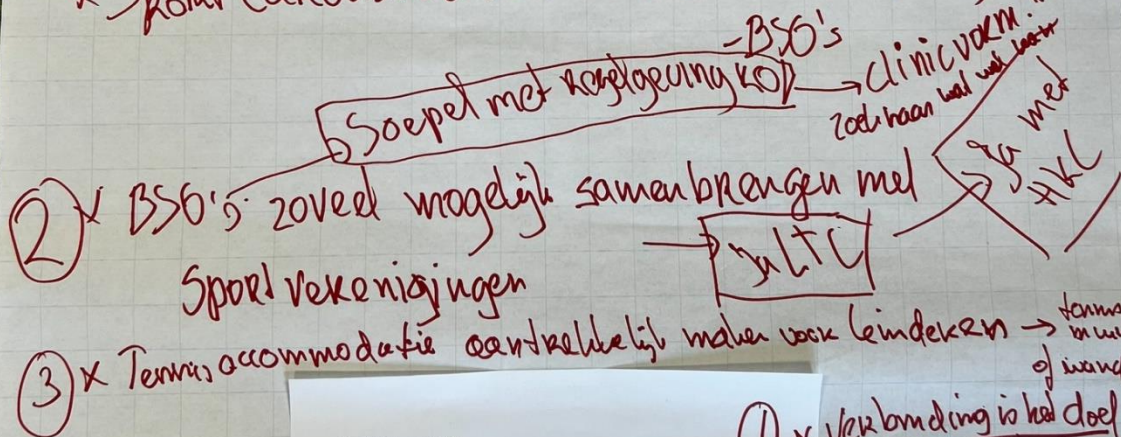 -BSO's
Soepel met regelgeving KOP → clinic vorm.
zoek naar wat wel kan
② x BSO's zoveel mogelijk samenbrengen met
Sportverenigingen
→ JULTC
ja met
HKL
③ x Tennisaccommodatie aantrekkelijk maken voor kinderen → tennis
of wand
① x verbinding is het doel